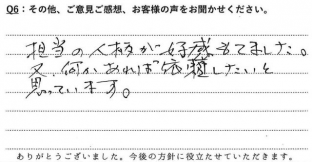 Q6：その他、ご意見ご感想、お客様の声をお聞かせください。
担当の人柄が好感もてました。
又、何かあれば依頼したいと
思っています。
ありがとうございました。今後の方針に役立たせていただきます。